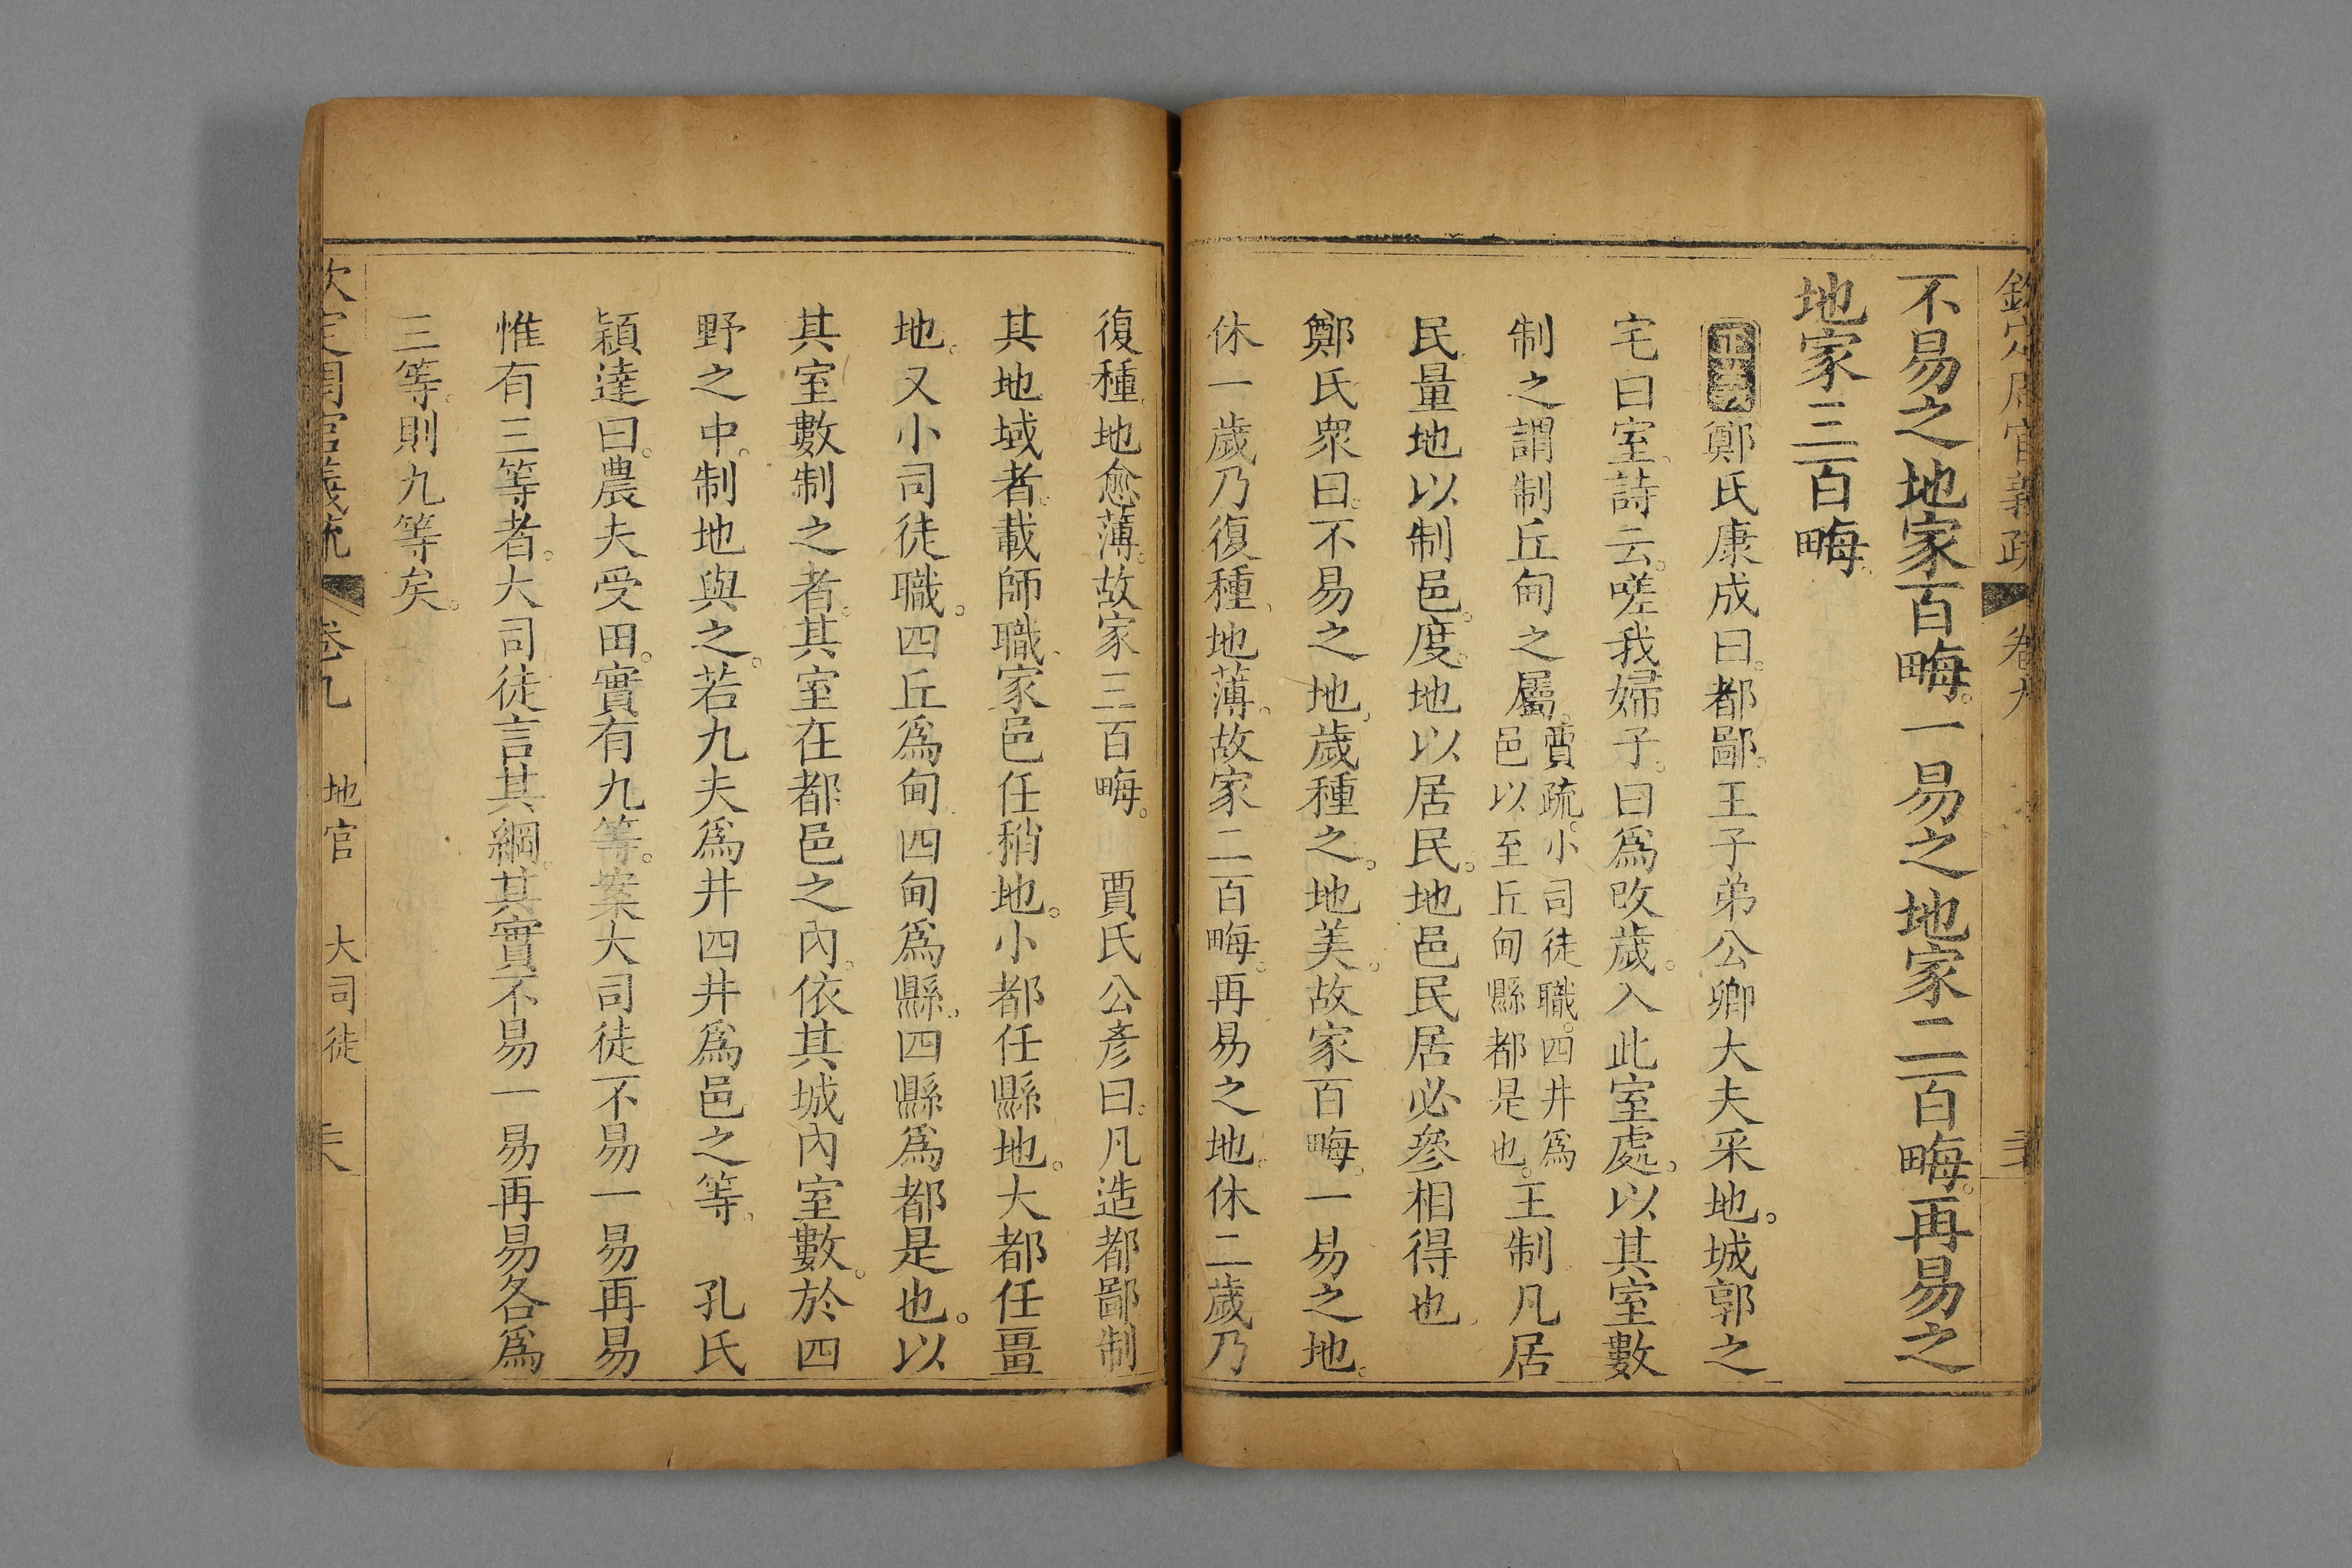 欽定周官義疏 卷九
不易之地家百畮。一易之地家二百畮。再易之
地家三百畮
正義鄭氏康成曰。都鄙。王子弟公卿大夫采地。城郭之
宅曰室。詩云。嗟我婦子。曰為改歲。入此室處。以其室數
制之謂制丘甸之屬。賈疏。小司徒職。四井為
邑以至丘甸縣都是也。王制凡居
民。量地以制邑。度地以居民。地邑民居必參相得也
鄭氏眾曰。不易之地。歲種之。地美。故家百畮。一易之地。
休一歲乃復種。地薄。故家二百畮。再易之地。休二歲乃
復種。地愈薄。故家三百畮。 賈氏公彥曰。凡造都鄙制
其地域者。載師職。家邑任稍地。小都任縣地。大都任畺
地。又小司徒職。四丘為甸。四甸為縣。四縣為都是也。以
其室數制之者。其室在都邑之內。依其城內室數。於四
野之中。制地與之。若九夫為井四井為邑之等。 孔氏
穎達曰。農夫受田。實有九等。案大司徒不易一易再易
惟有三等者。大司徒言其綱。其實不易一易再易各為
三等。則九等矣。
欽定周官義疏 卷九 地官 大司徒